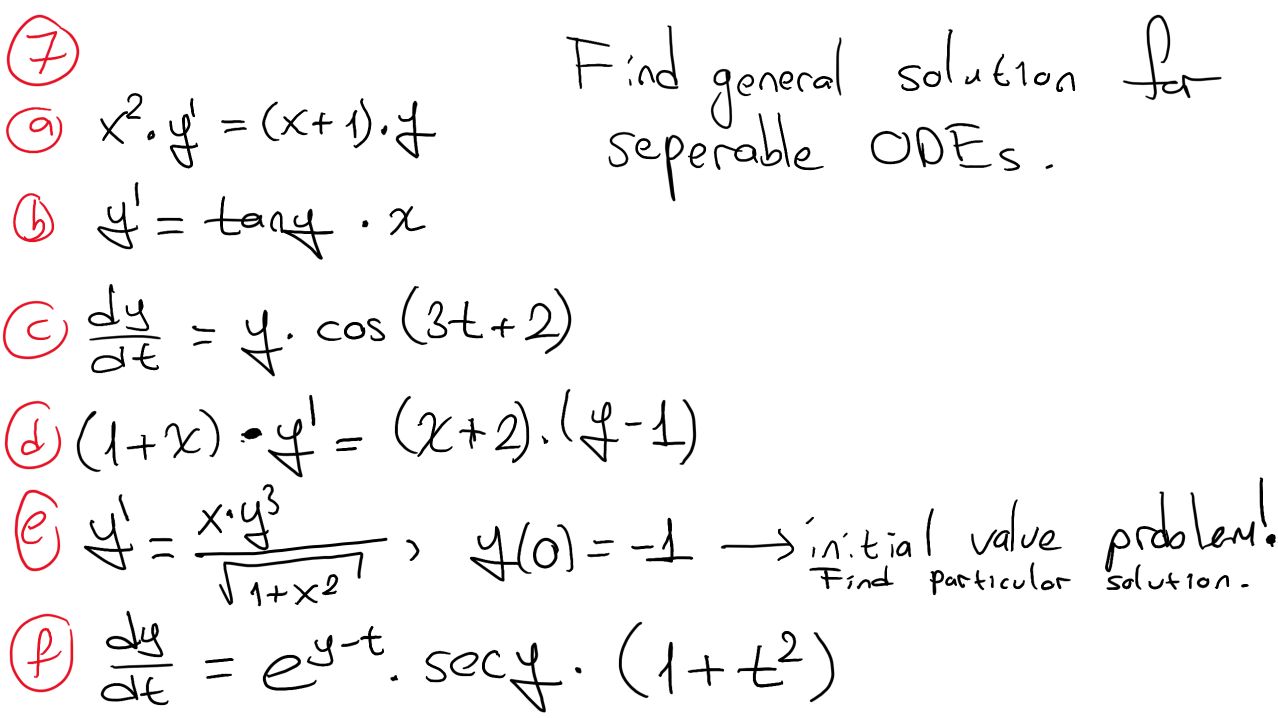 7
Find general solution for
seperable ODEs.
a x²·y' = (x+1)·y
b y' = tany · x
c dy/dt = y· cos(3t+2)
d (1+x)·y' = (x+2).(y-1)
e y' = x·y³/√(1+x²) , y(0) = -1 → initial value problem!
Find particular solution.
f dy/dt = e^(y-t) . secy · (1+t²)